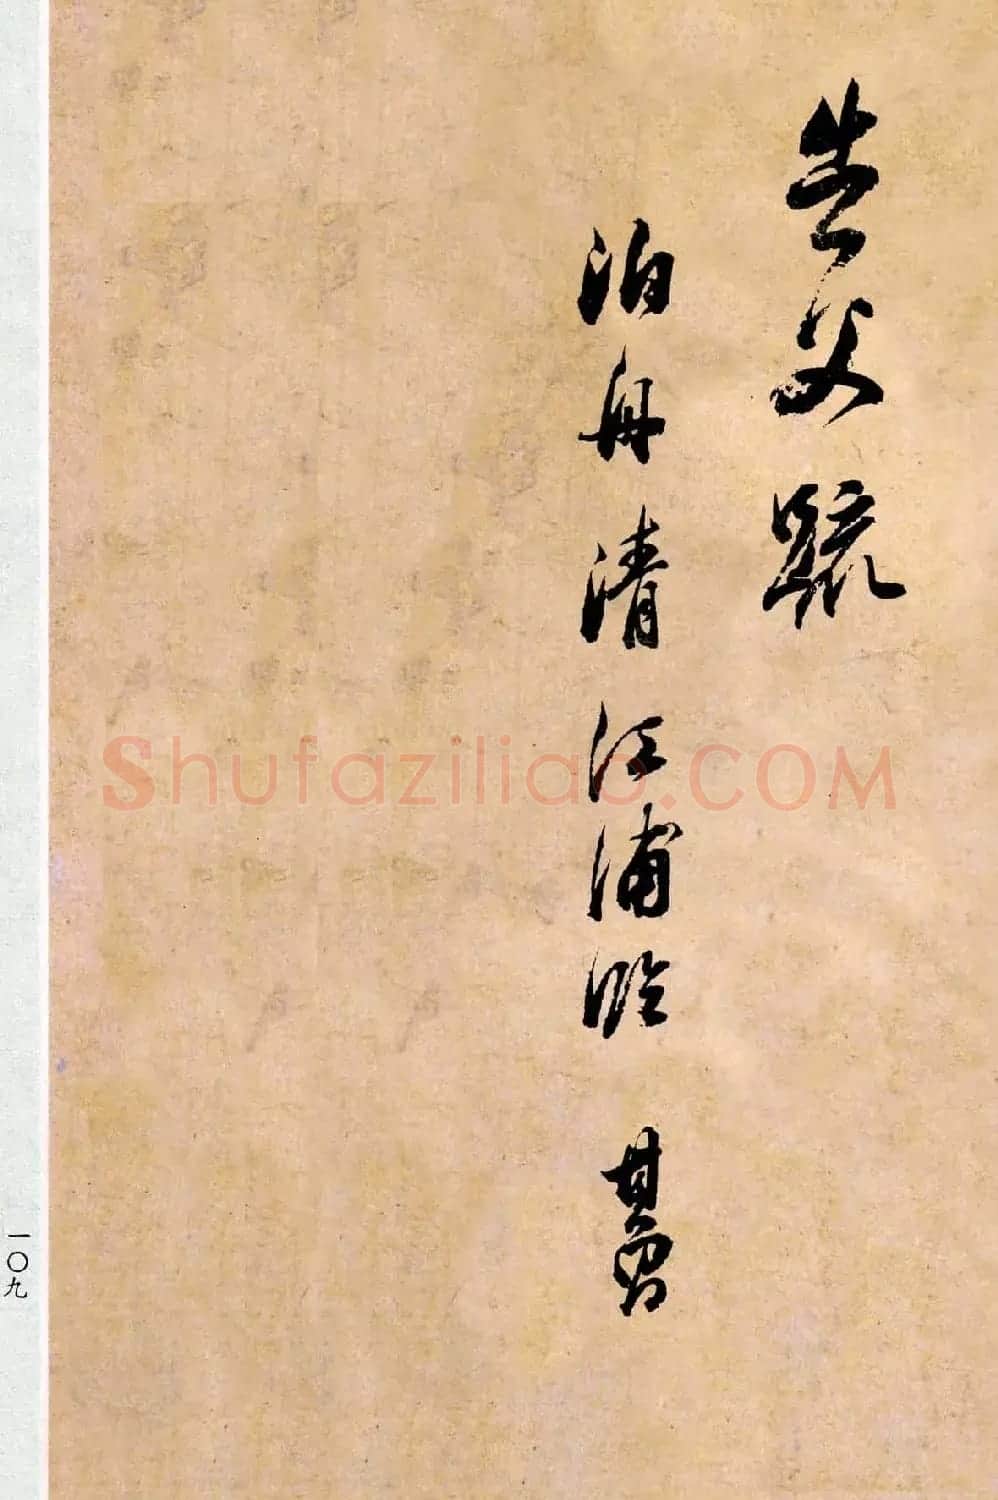 告父疏
泊舟清江浦臨 其昌
一〇九
Shufaziliao.COM